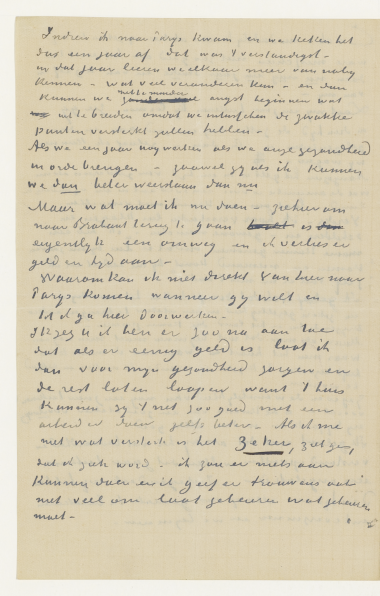 Indien ik naar Parys kwam en we hielden het
dus een jaar af dat was 't verstandigst –
in dat jaar leeren we elkaar meer van naby
kennen – wat veel veranderen kan – en dan
kunnen we met te minder angst beginnen wat
uit te breiden omdat we intusschen de zwakke
punten versterkt zullen hebben –
Als we een jaar nog werken als we onze gezondheid
in orde brengen – zoowel gy als ik kunnen
we dan beter weerstaan dan nu
Maar wat moet ik nu doen – ziehier om
naar Brabant terug te gaan is
eigentlyk een omweg en ik verlies er
geld en tyd aan –
Waarom kan ik niet direkt van hier naar
Parys komen wanneer gy wilt en
tot ik ga hier doorwerken –
Ik zeg u ik ben er zoo na aan toe
dat als er eenig geld is laat ik
dan voor myn gezondheid zorgen en
de rest laten loopen want 't huis
kunnen zy 't net zoo goed met een
arbeider doen zelfs beter – Als ik me
niet wat versterk is het zeker, ziet ge,
dat ik ziek word – ik zou er niets aan
kunnen doen en ik geef er trouwens ook
niet veel om laat gebeuren wat gebeuren
moet –